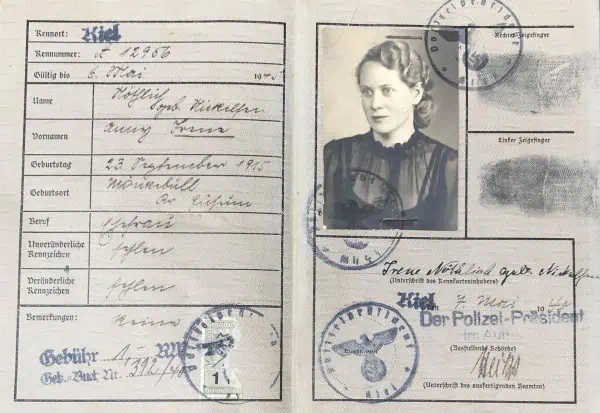 Kennort: Kiel
Kennummer: A 12956
Gültig bis 6. Mai 194
Name
geb. Nickelsen
Vornamen Anny Irene
Geburtstag 23. September 1915
Geburtsort
Kr. Husum
Beruf Ehefrau
Unveränderliche Kennzeichen fehlen
Veränderliche Kennzeichen fehlen
Bemerkungen: Keine
Gebühr 1 RM
Geb.-Buch Nr. 392/40
1
Polizeipräsident
Kiel
Rechter Zeigefinger
Linker Zeigefinger
Irene geb. Nickelsen
(Unterschrift des Kennkarteninhabers)
Kiel, 7. Mai 1940
Der Polizei-Präsident
Im Auftr.
(Ausstellende Behörde)
(Unterschrift des ausfertigenden Beamten)
Polizeipräsident
Dienststempel
Kiel